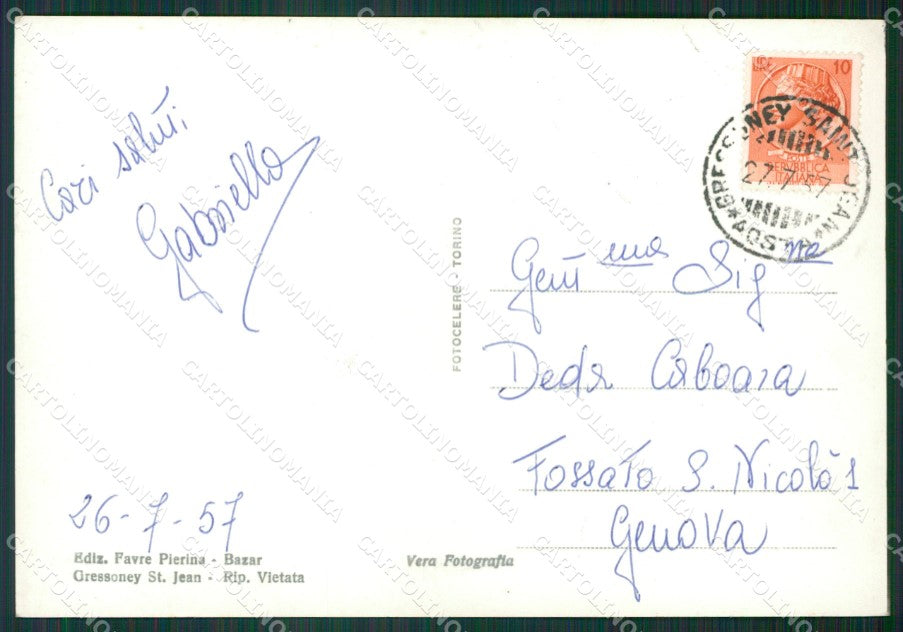 Cari saluti
Gabriella
26-7-57
Ediz. Favre Pierina - Bazar
Gressoney St. Jean - Rip. Vietata
FOTOCELERE - TORINO
Vera Fotografia
LIRE 10
POSTE
REPVBBLICA
ITALIANA
GRESSONEY SAINT JEAN
27.7.57
*AOSTA*
Gent ma Sig na
Deda Caboara
Fossato S. Nicolò 1
Genova
CARTOLINOMANIA